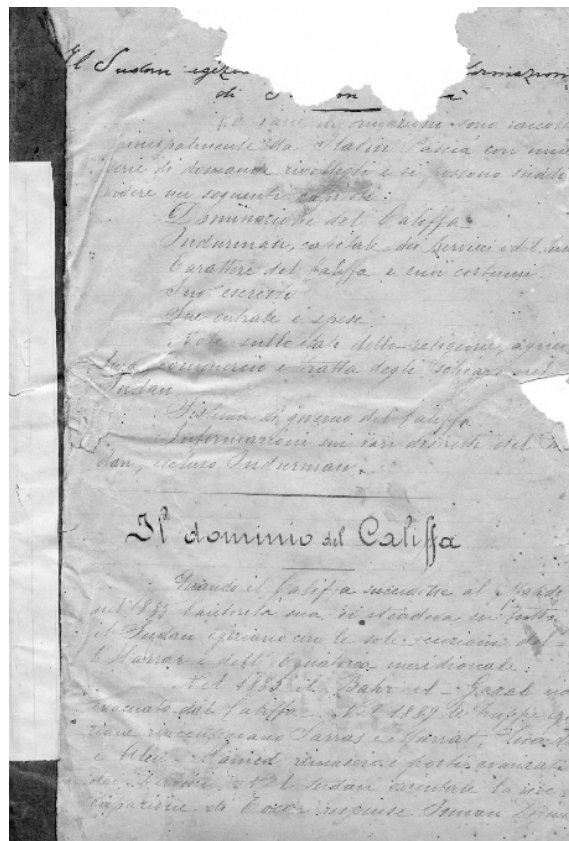 Il Sudan
di
informazioni sono raccolte
principalmente da Slatin Pascià con una
serie di domande rivoltegli e si possono suddi
videre nei seguenti capitoli:
Dominazione del Califfa.
Indurman, capitale dei Dervisci e del
Carattere del Califfa e suoi costumi.
Suo esercito
Sue entrate e spese.
Note sullo stato della religione, agricol
tura, commercio e tratta degli schiavi nel
Sudan.
Sistema di governo del Califfa.
Informazioni sui vari distretti del Su
dan, escluso Indurman.
Il dominio del Califfa
Quando il Califfa succedette al Mahdi
nel 1885 l'autorità sua si stendeva su tutto
il Sudan egiziano con le sole eccezioni del
l'Harrar e dell'Equatoria meridionale:
Nel 1885 il Bahr-el-Gazal
evacuato dal Califfa. Nel 1889 le truppe egi
ziane rioccuparono Sarras e Murrat,
e Abu-Hamed rimasero i posti avanzati
dei Dervisci. Nel Sudan orientale la rioc
cupazione di Tocar respinse Osman Digma